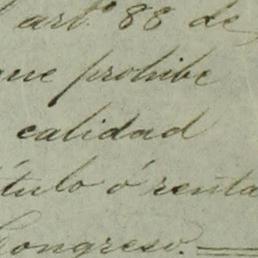 art.º 88 de
que prohibe
calidad
título ó renta
Congreso.